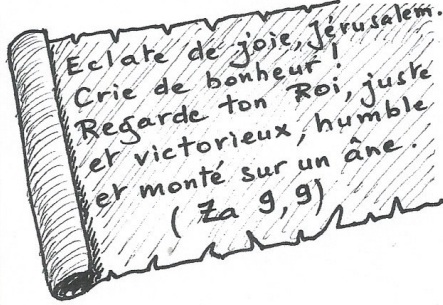 Eclate de joie, Jérusalem.
Crie de bonheur !
Regarde ton Roi, juste
et victorieux, humble
et monté sur un âne.
(Za 9,9)